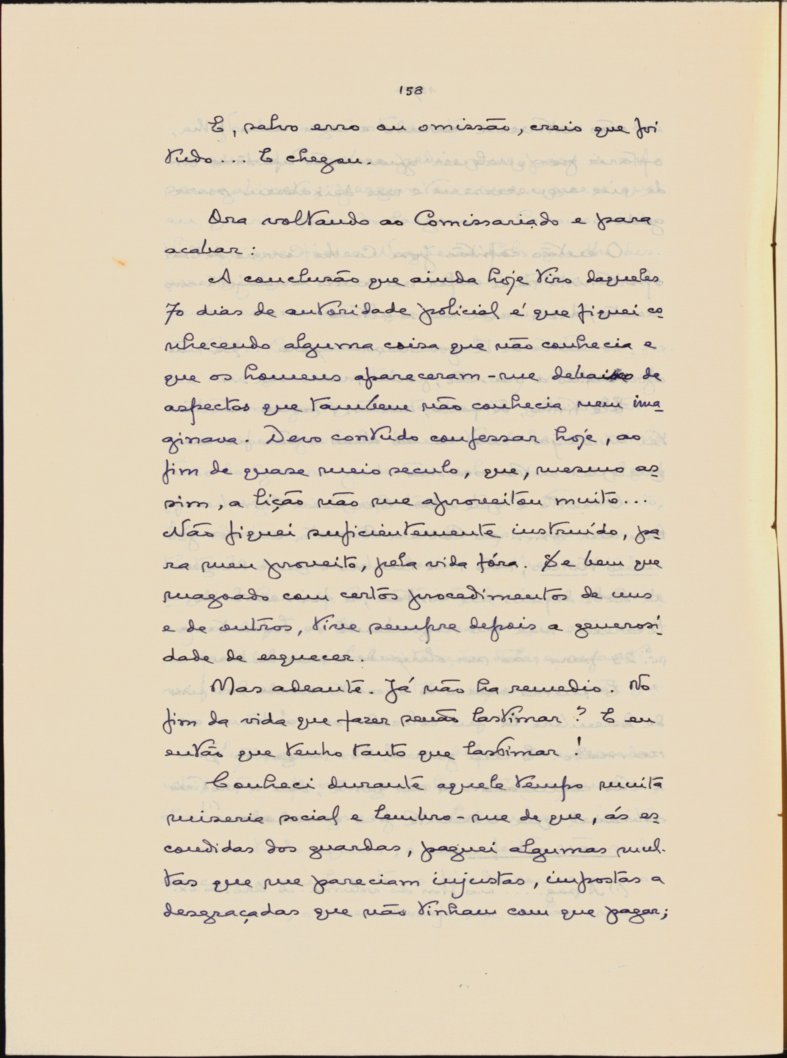 158
E, salvo erro ou omissão, creio que foi
tudo... E chegou.
Ora voltando ao Comissariado e para
acabar:
A conclusão que ainda hoje tiro daqueles
70 dias de autoridade policial é que fiquei co
nhecendo alguma coisa que não conhecia e
que os homens apareceram-me debaixo de
aspectos que tambem não conhecia nem ima
ginava. Devo contudo confessar hoje, ao
fim de quase meio seculo, que, mesmo as
sim, a lição não me aproveitou muito...
Não fiquei suficientemente instruído, pa
ra meu proveito, pela vida fóra. Se bem que
magoado com certos procedimentos de uns
e de outros, tive sempre depois a generosi
dade de esquecer.
Mas adeante. Já não ha remedio. No
fim da vida que fazer senão lastimar? E eu
então que tenho tanto que lastimar!
Conheci durante aquele tempo muita
miseria social e lembro-me de que, ás es
condidas dos guardas, paguei algumas mul-
tas que me pareciam injustas, impostas a
desgraçadas que não tinham com que pagar;